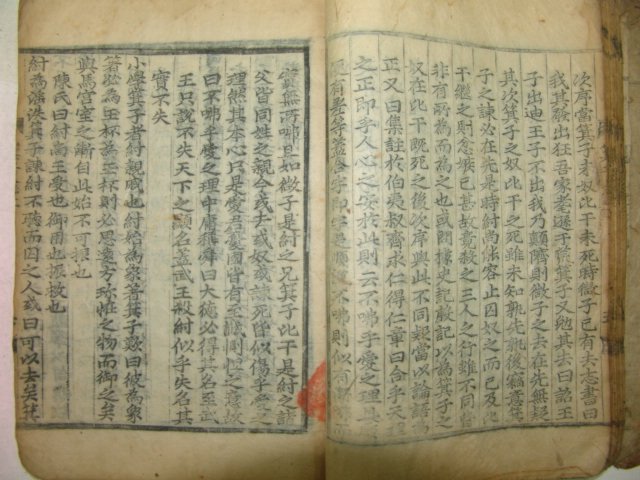 次序當箕子未奴比干未死時微子已有去志書曰
我其發出狂吾家耄遜于荒箕子又勉其去曰詔王
子出迪王子不出我乃顚隮則微子之去在先無疑
其次箕子之奴比干之死雖未知孰先孰後竊意箕
子之諫必在先是時紂尙能容止囚奴之而已及比
干繼之則忿嫉已甚故竟殺之三人之行雖不同皆
非有所爲而爲之也或問據史記殷記以爲箕子之
奴在比干旣死之後次序與此不同疑當以論語爲
正又曰集註於伯夷叔齊求仁得仁章曰合乎天理
之正卽乎人心之安於此則云不咈乎愛之理其
不咈則似有
實無所咈且如微子是紂之兄箕子比干是紂之諸
父皆同姓之親今或去或奴或諫死皆似傷乎愛之
理然其本心只是愛君憂國皆有至誠惻怛之意故
曰不咈乎愛之理中庸稱舜曰大德必得其名至武
王只說不失天下之顯名蓋武王殺紂似乎失名其
實不失
小學箕子者紂親戚也紂始爲象箸箕子歎曰彼爲象
箸必爲玉杯爲玉杯則必思遠方珍怪之物而御之矣
輿馬宮室之漸自此始不可振也
陳氏曰紂商王受也御用也振救也
紂爲淫泆箕子諫紂不聽而囚之人或曰可以去矣箕